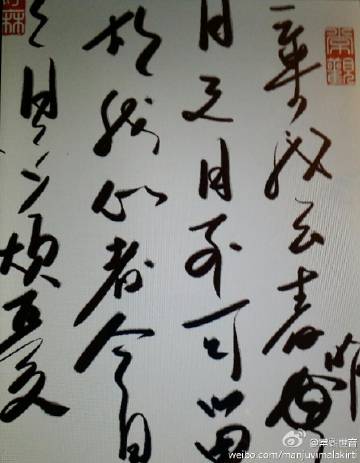 棄我去者昨
日之日不可留
亂我心者今日
之日多煩憂
weibo.com/manjuvimalakirti